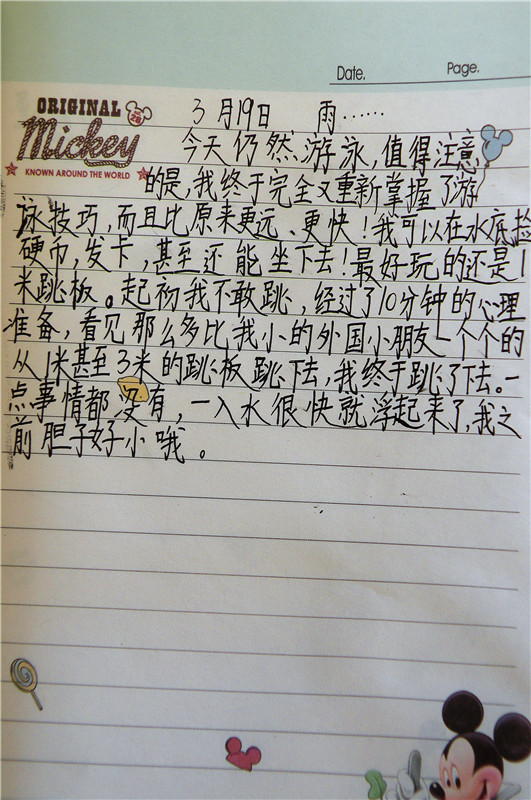 Date.
Page.
ORIGINAL
28
Mickey
KNOWN AROUND THE WORLD
3月19日 雨……
今天仍然游泳,值得注意
的是,我终于完全又重新掌握了游
泳技巧,而且比原来更远、更快!我可以在水底捡
硬币,发卡,甚至还能坐下去!最好玩的还是1
米跳板。起初我不敢跳,经过了10分钟的心理
准备,看见那么多比我小的外国小朋友一个个的
从1米甚至3米的跳板跳下去,我终于跳了下去。一
点事情都没有,一入水很快就浮起来了,我之
前胆子好小哦。